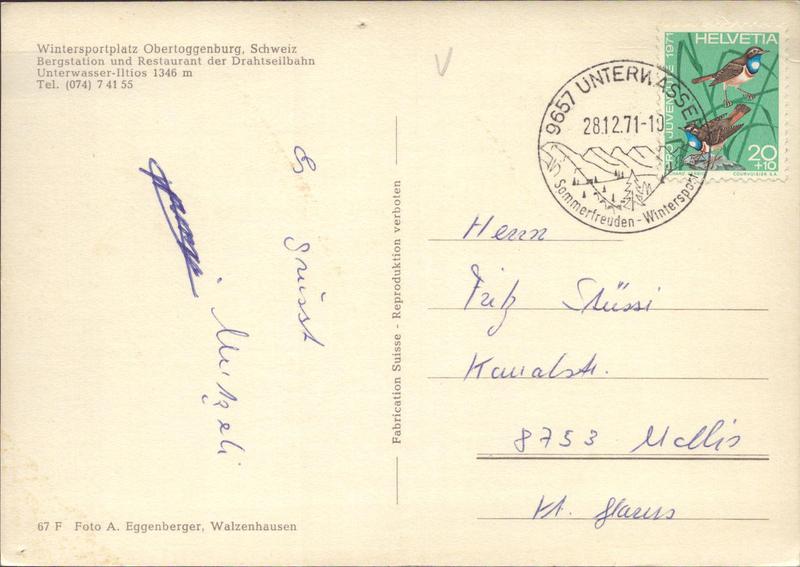 Wintersportplatz Obertoggenburg, Schweiz
Bergstation und Restaurant der Drahtseilbahn
Unterwasser-Iltios 1346 m
Tel. (074) 7 41 55
Es grüsst
67 F Foto A. Eggenberger, Walzenhausen
Fabrication Suisse - Reproduktion verboten
9657 UNTERWASSER
28.12.71-10
Sommerfreuden - Wintersport
HELVETIA
PRO JUVENTUTE 1971
20
+10
COURVOISIER S.A.
Herrn
Fritz Stüssi
Kanalstr.
8753 Mollis
Kt. Glarus